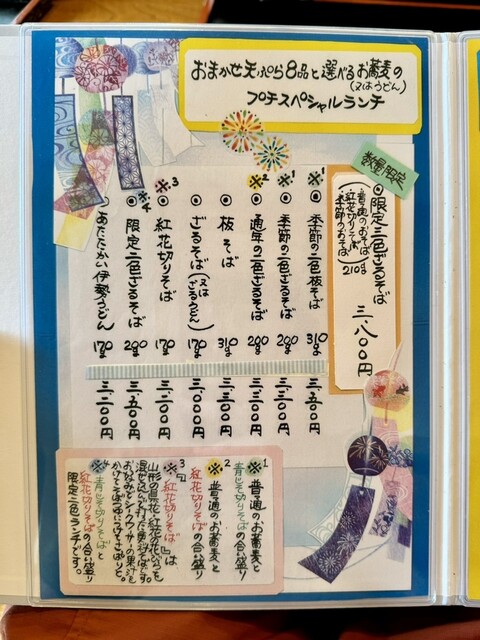 おまかせ天ぷら8品と選べるお蕎麦の
(又はうどん)
プチスペシャルランチ
数量限定
◎限定三色ざるそば
(普通のおそば
紅花切りそば
季節のおそば) 210g
三、八〇〇円
※1
◎季節の二色板そば 310g 三、五〇〇円
※1
◎季節の二色ざるそば 200g 三、三〇〇円
※2
◎通年の二色ざるそば 200g 三、三〇〇円
◎板そば 310g 三、三〇〇円
◎ざるそば(又はざるうどん) 170g 三、一〇〇円
※3
◎紅花切りそば 170g 三、二〇〇円
※4
◎限定二色ざるそば 200g 三、五〇〇円
◎あたたかい伊勢うどん 170g 三、二〇〇円
※1 普通のお蕎麦と
青じそ切りそばの合い盛り
※2 普通のお蕎麦と
紅花切りそばの合い盛り
※3 『紅花切りそば』は
山形の県花・紅花の花びらを
混ぜ込んで作ったお蕎麦です。
※4 青じそ切りそばと
紅花切りそばの合い盛り
限定二色ランチです。